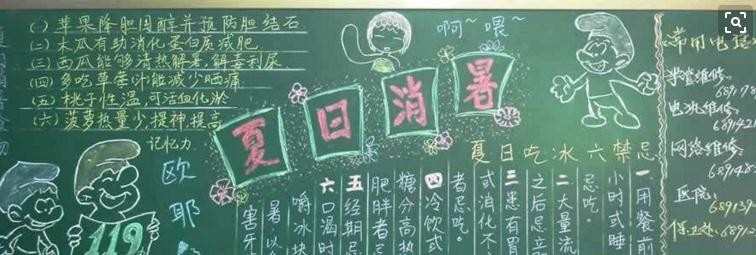 (一) 苹果降胆固醇并预防胆结石
(二) 木瓜有助消化蛋白质减肥
(三) 西瓜能够清热解暑,解毒利尿
(四) 多吃草莓冲能减少晒痛
(五) 桃子性温,可活血化淤
(六) 菠萝热量少,提神,提高
记忆力
啊~喂~
夏日消暑
欧
耶
119
夏日吃冰六禁忌
一用餐前
小时或睡
忌吃。
二大量流
之后忌立
三患有胃
或消化不
者忌吃。
四冷饮或
糖分高热
肥胖者忌
五经期忌
六口渴时
嚼冰块
暑,以
害牙
常用电话
电池维修:
网络维修:
医院: